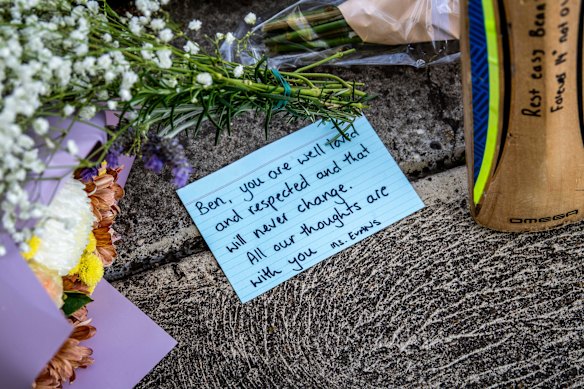 Ben, you are well loved
and respected and that
will never change.
All our thoughts are
with you Ms. Evans
Rest easy Ben
Forever 17 not out
OMEGA